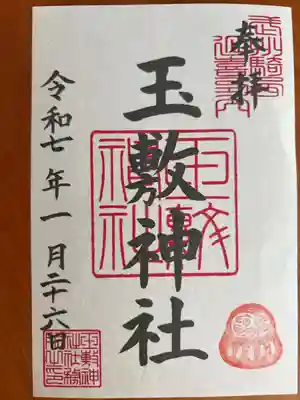 武州騎西
延喜式内
奉拝
玉敷神社
玉敷
神社
令和七年一月二十六日
玉敷神
社社務
所之印